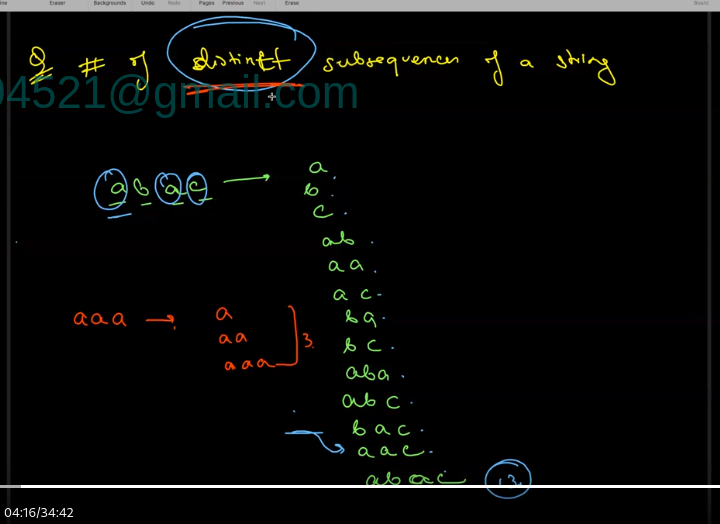 Eraser Backgrounds Undo Redo Pages Previous Next Erase Board
Q # of distinct subsequences of a string
04521@gmail.com
abac → a
b
c
ab
aa
ac
ba
bc
aba
abc
bac
aac
abac 13
aaa → a
aa
aaa 3
04:16/34:42